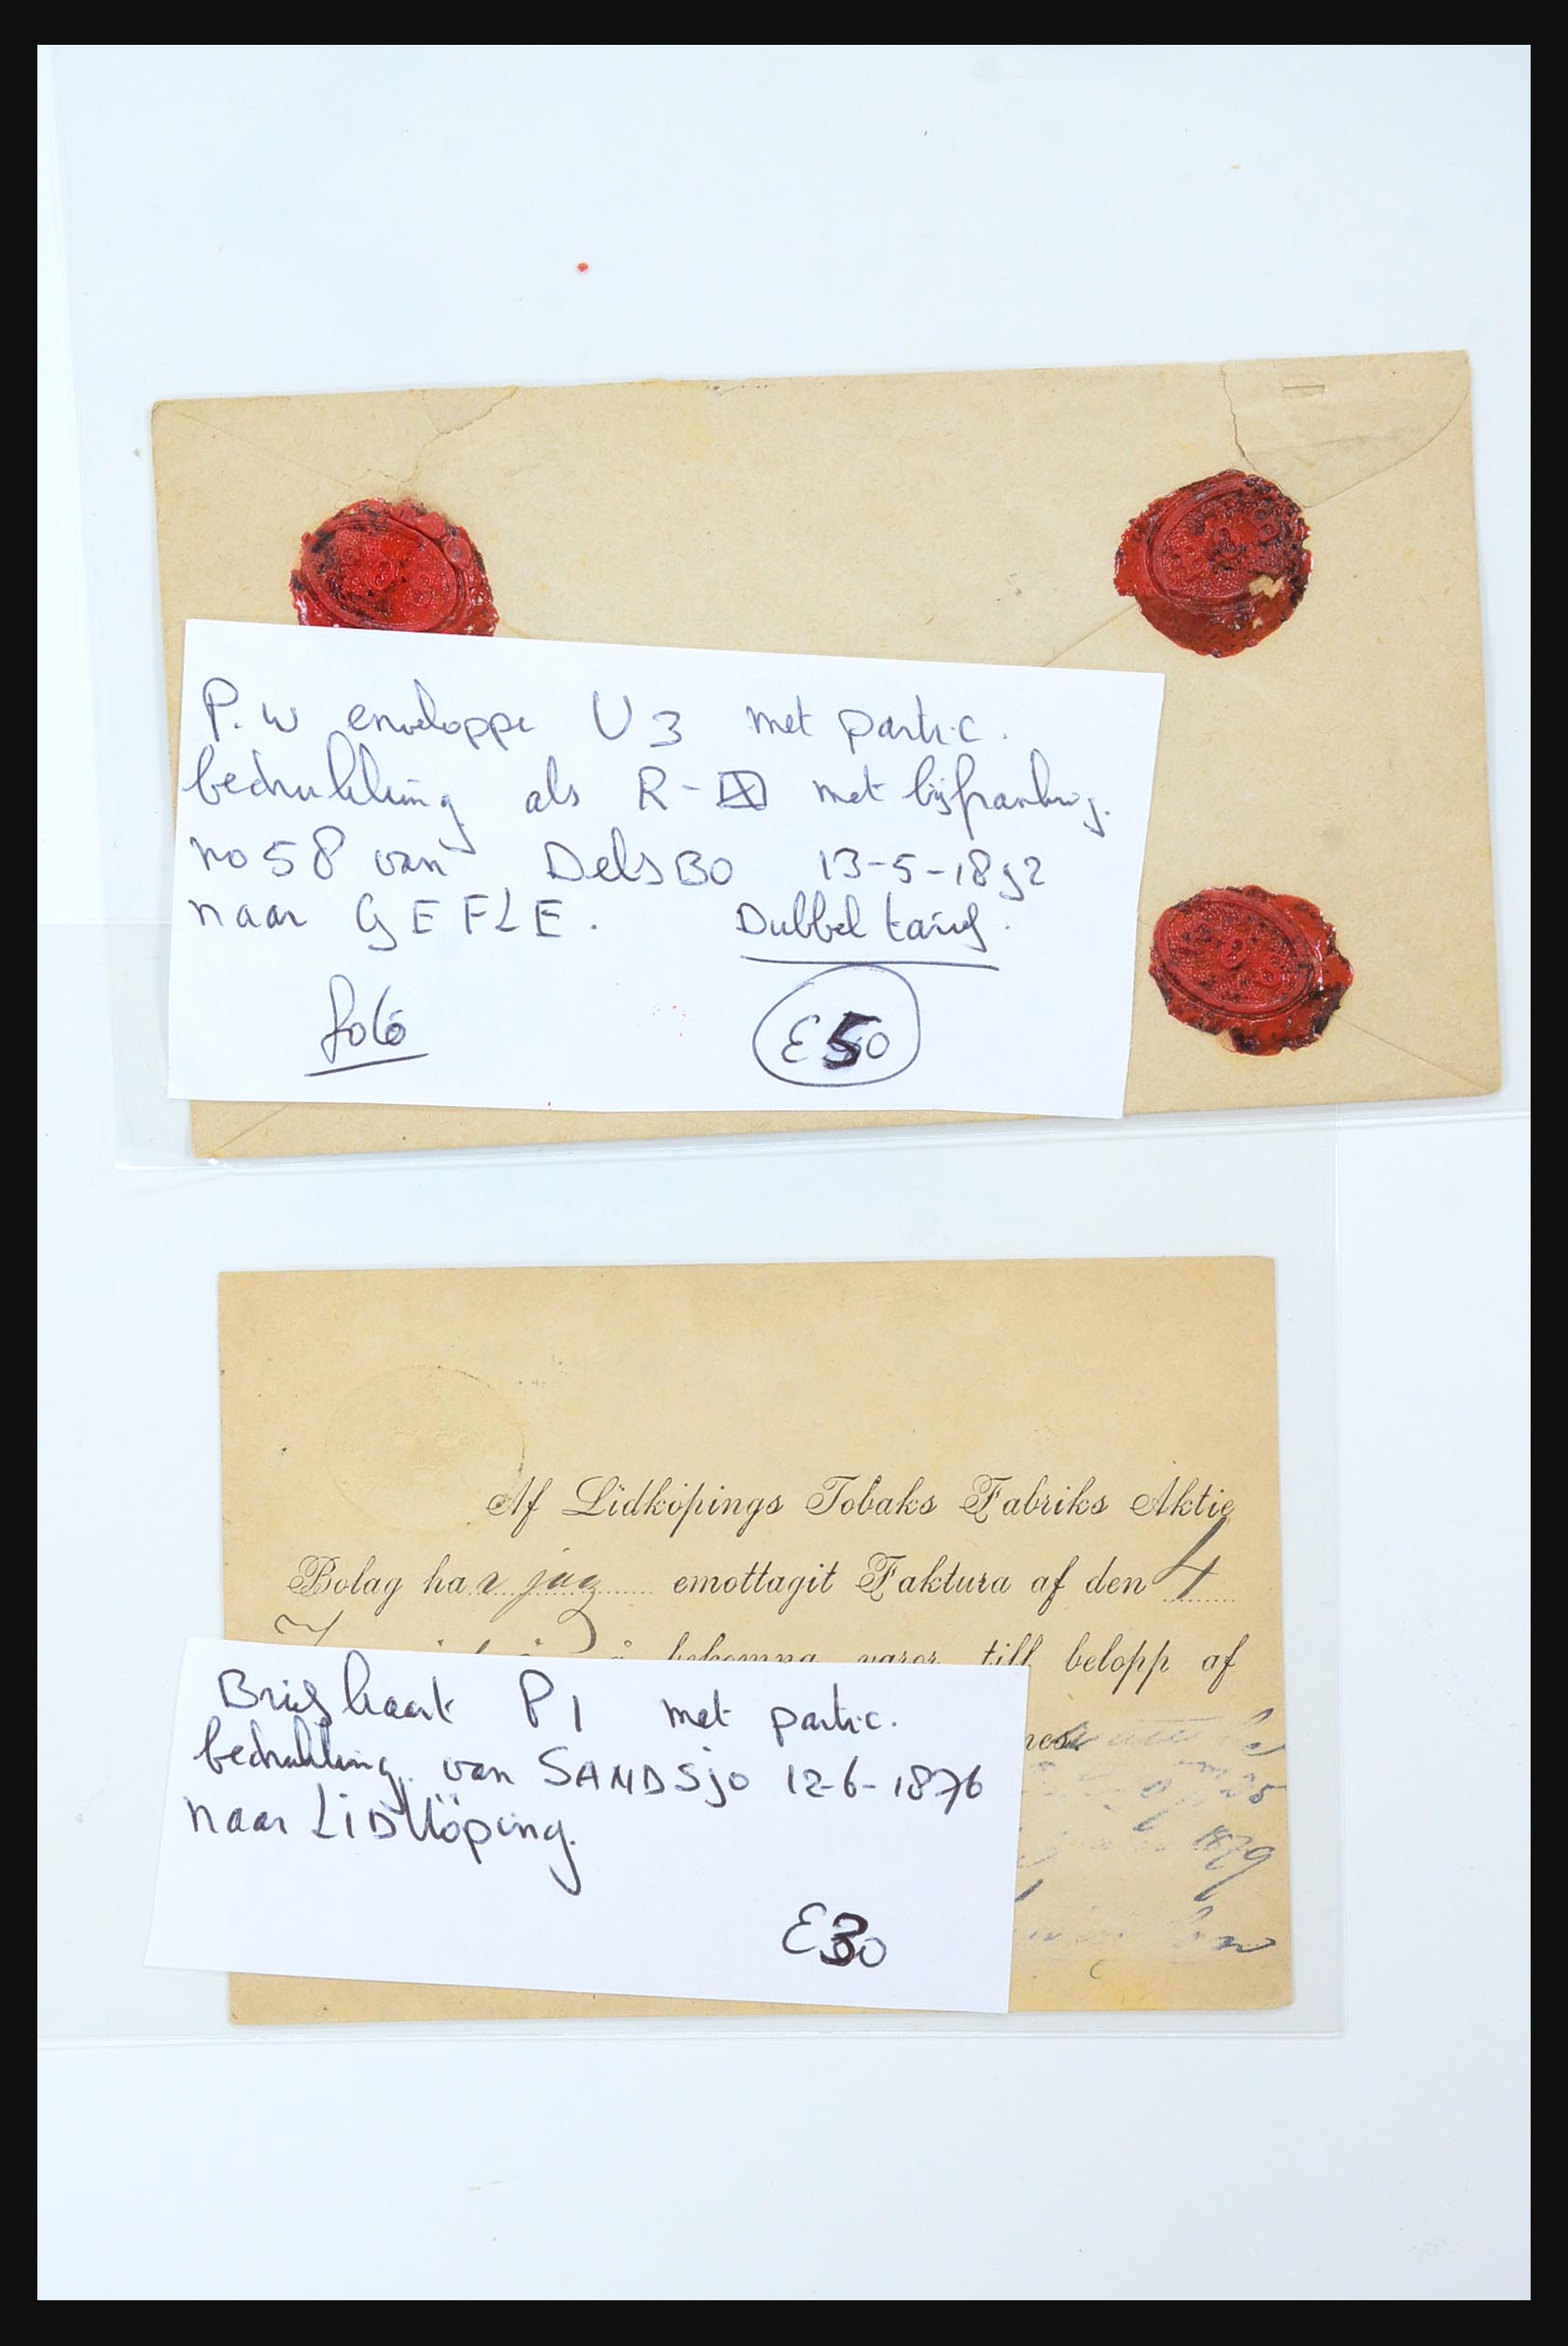 P.W enveloppe U3 met partic.
bedrukking als R- met bijfrankrg.
no 58 van DelsBO 13-5-1892
naar GEFLE. Dubbel tarief.
foto €50
Af Lidköpings Tobaks Fabriks Aktie
Bolag har jag emottagit Faktura af den 4
på bekomna varor till belopp af
Briefkaart P1 met partic.
bedrukking van SANDSjo 12-6-1876
naar LiDKöping.
1879
€30